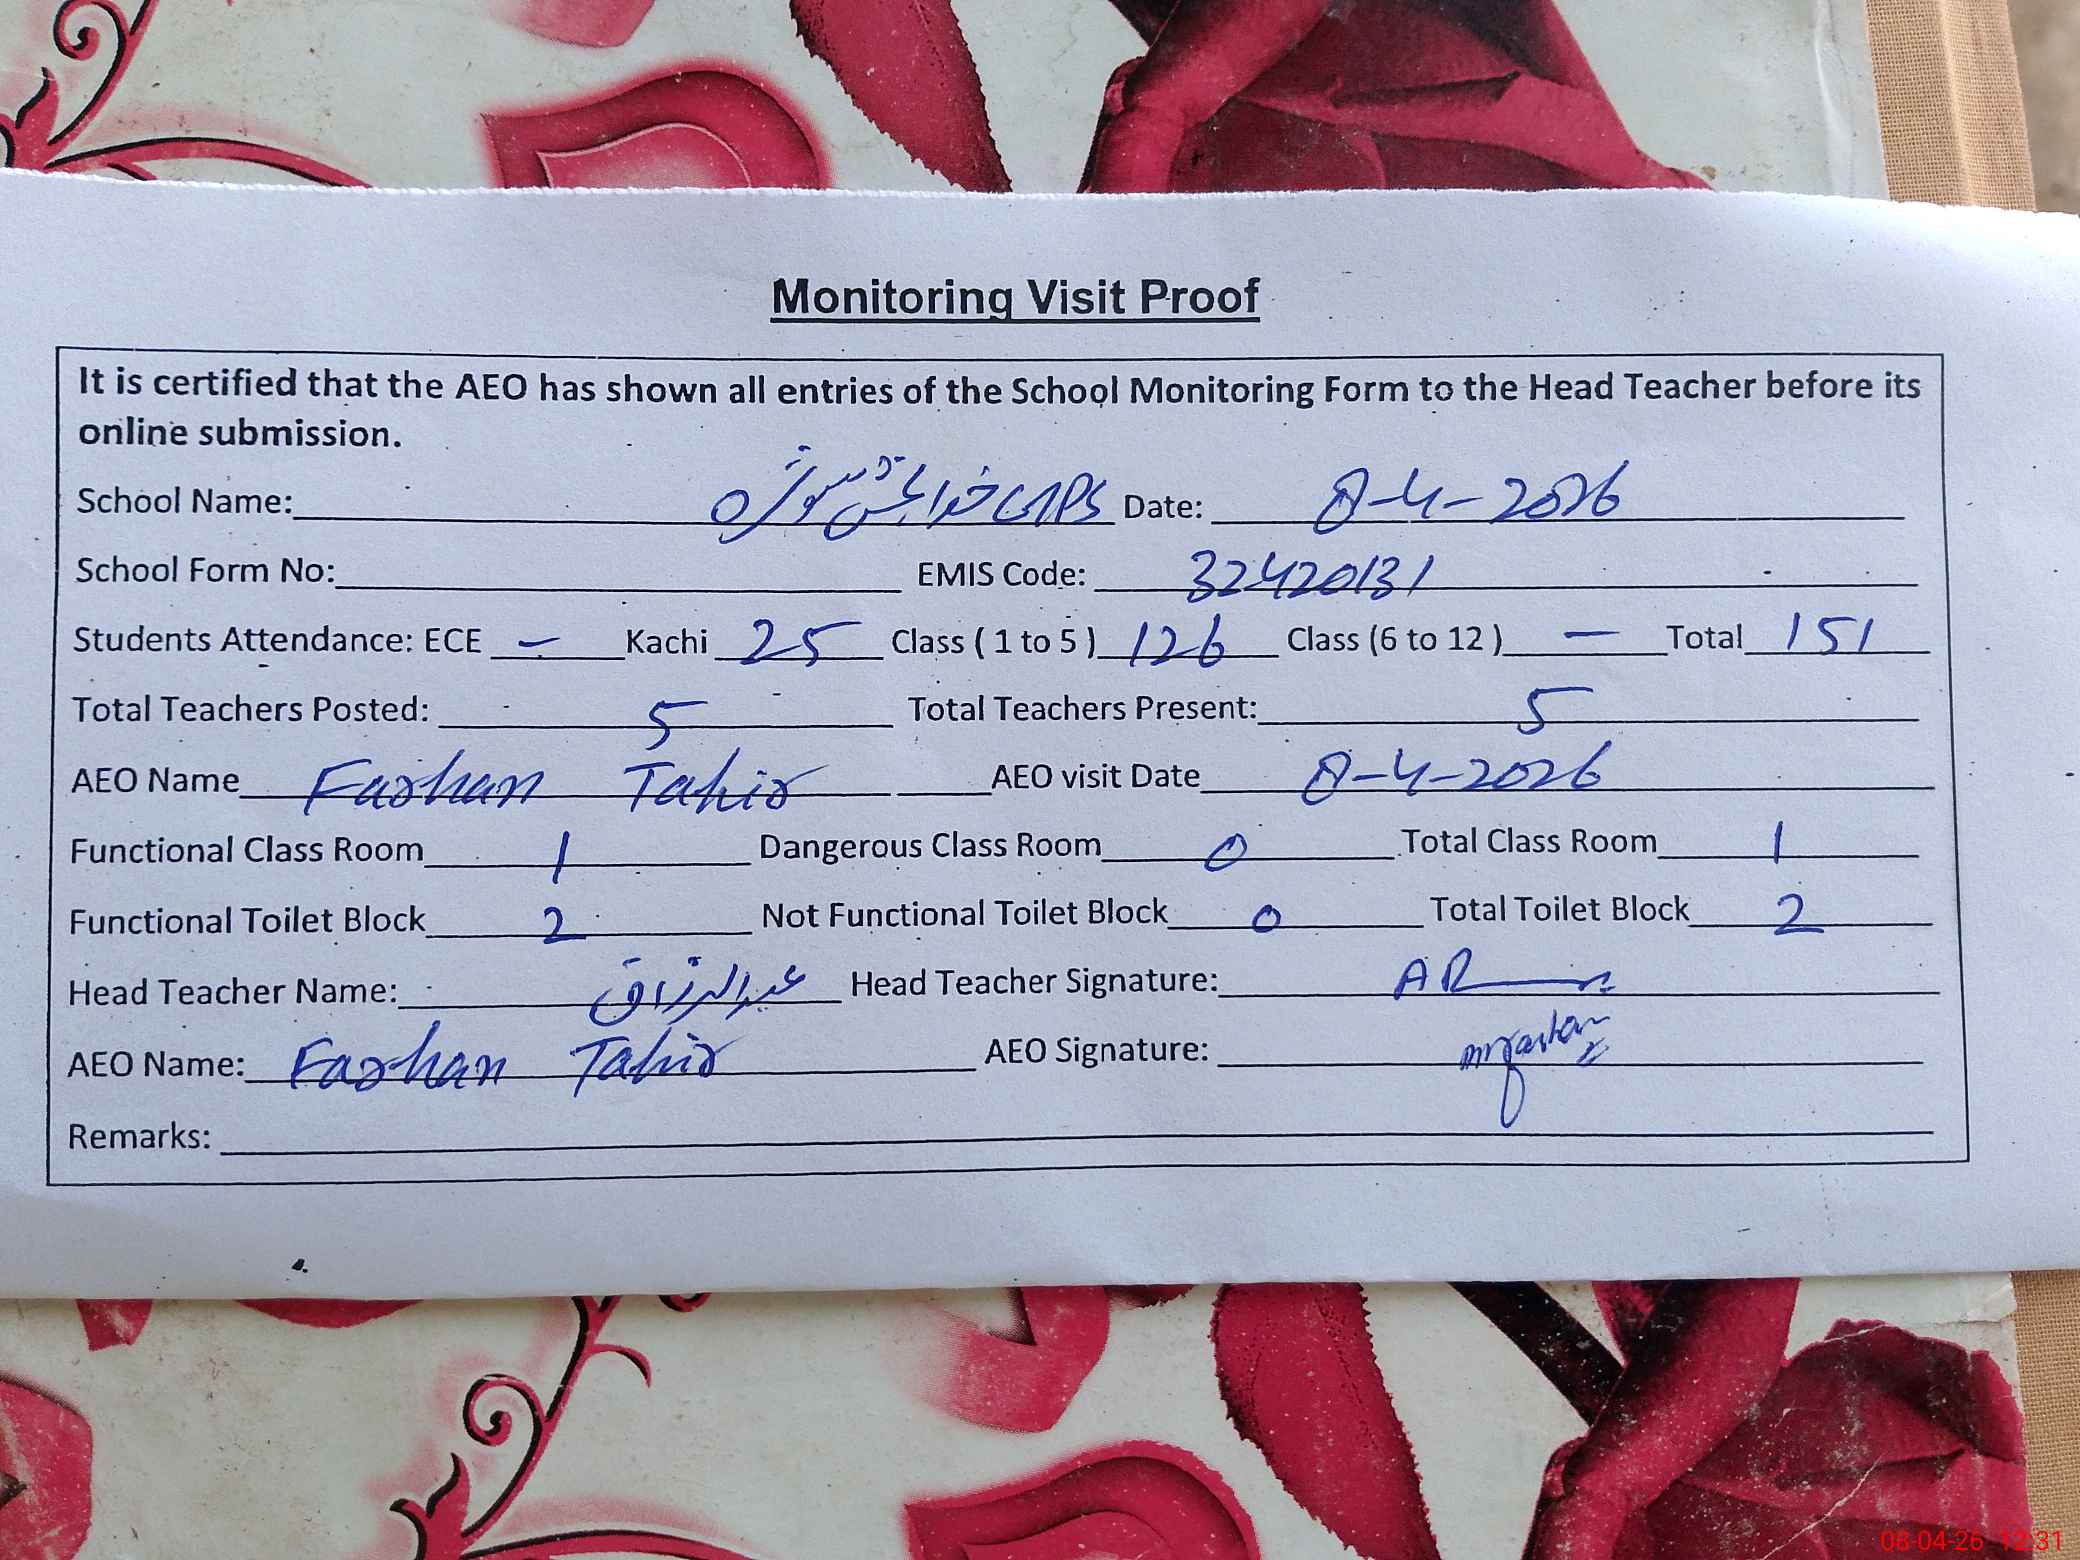 Monitoring Visit Proof
It is certified that the AEO has shown all entries of the School Monitoring Form to the Head Teacher before its
online submission.
School Name: GPS خدا بخش Date: 8-4-2026
School Form No: EMIS Code: 32420131
Students Attendance: ECE – Kachi 25 Class ( 1 to 5 ) 126 Class (6 to 12 ) – Total 151
Total Teachers Posted: 5 Total Teachers Present: 5
AEO Name Farhan Tahir AEO visit Date 8-4-2026
Functional Class Room 1 Dangerous Class Room 0 Total Class Room 1
Functional Toilet Block 2 Not Functional Toilet Block 0 Total Toilet Block 2
Head Teacher Name: عبدالرزاق Head Teacher Signature: AR
AEO Name: Farhan Tahir AEO Signature:
Remarks:
08-04-26 12:31